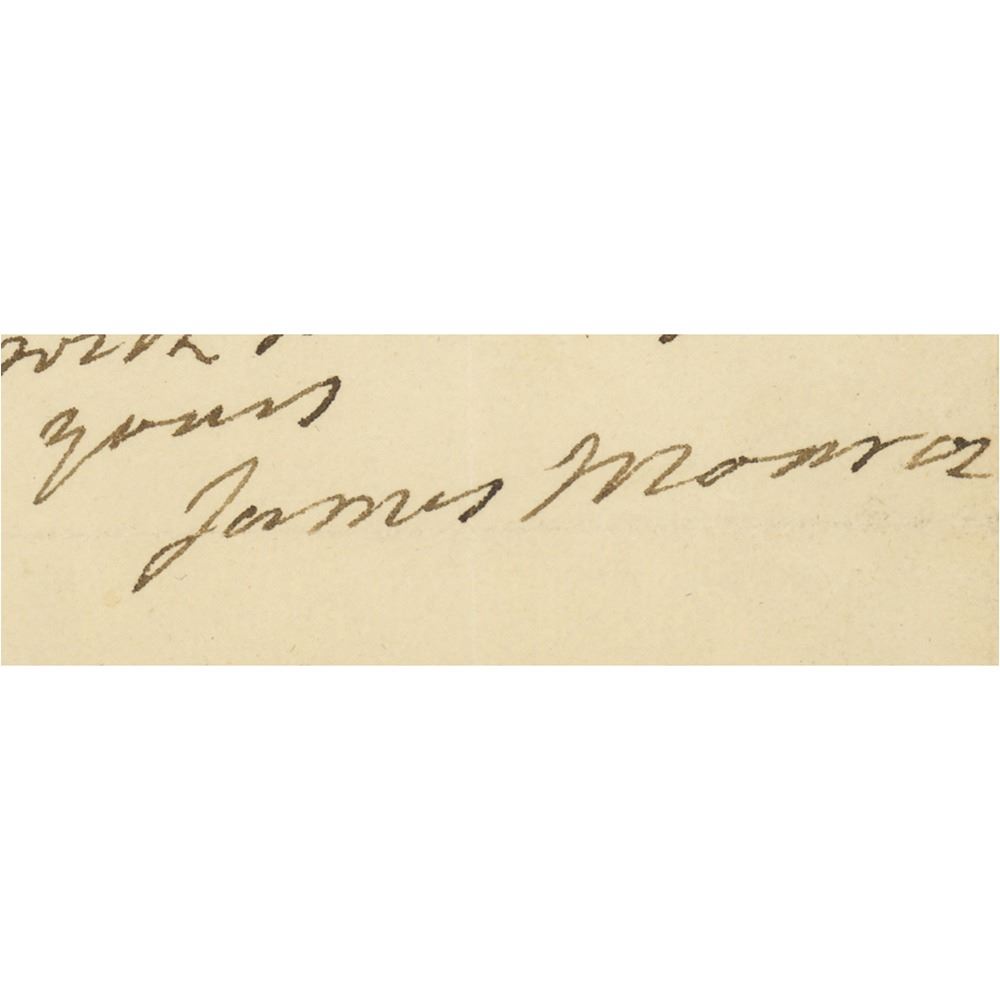 with
yours
James Monroe